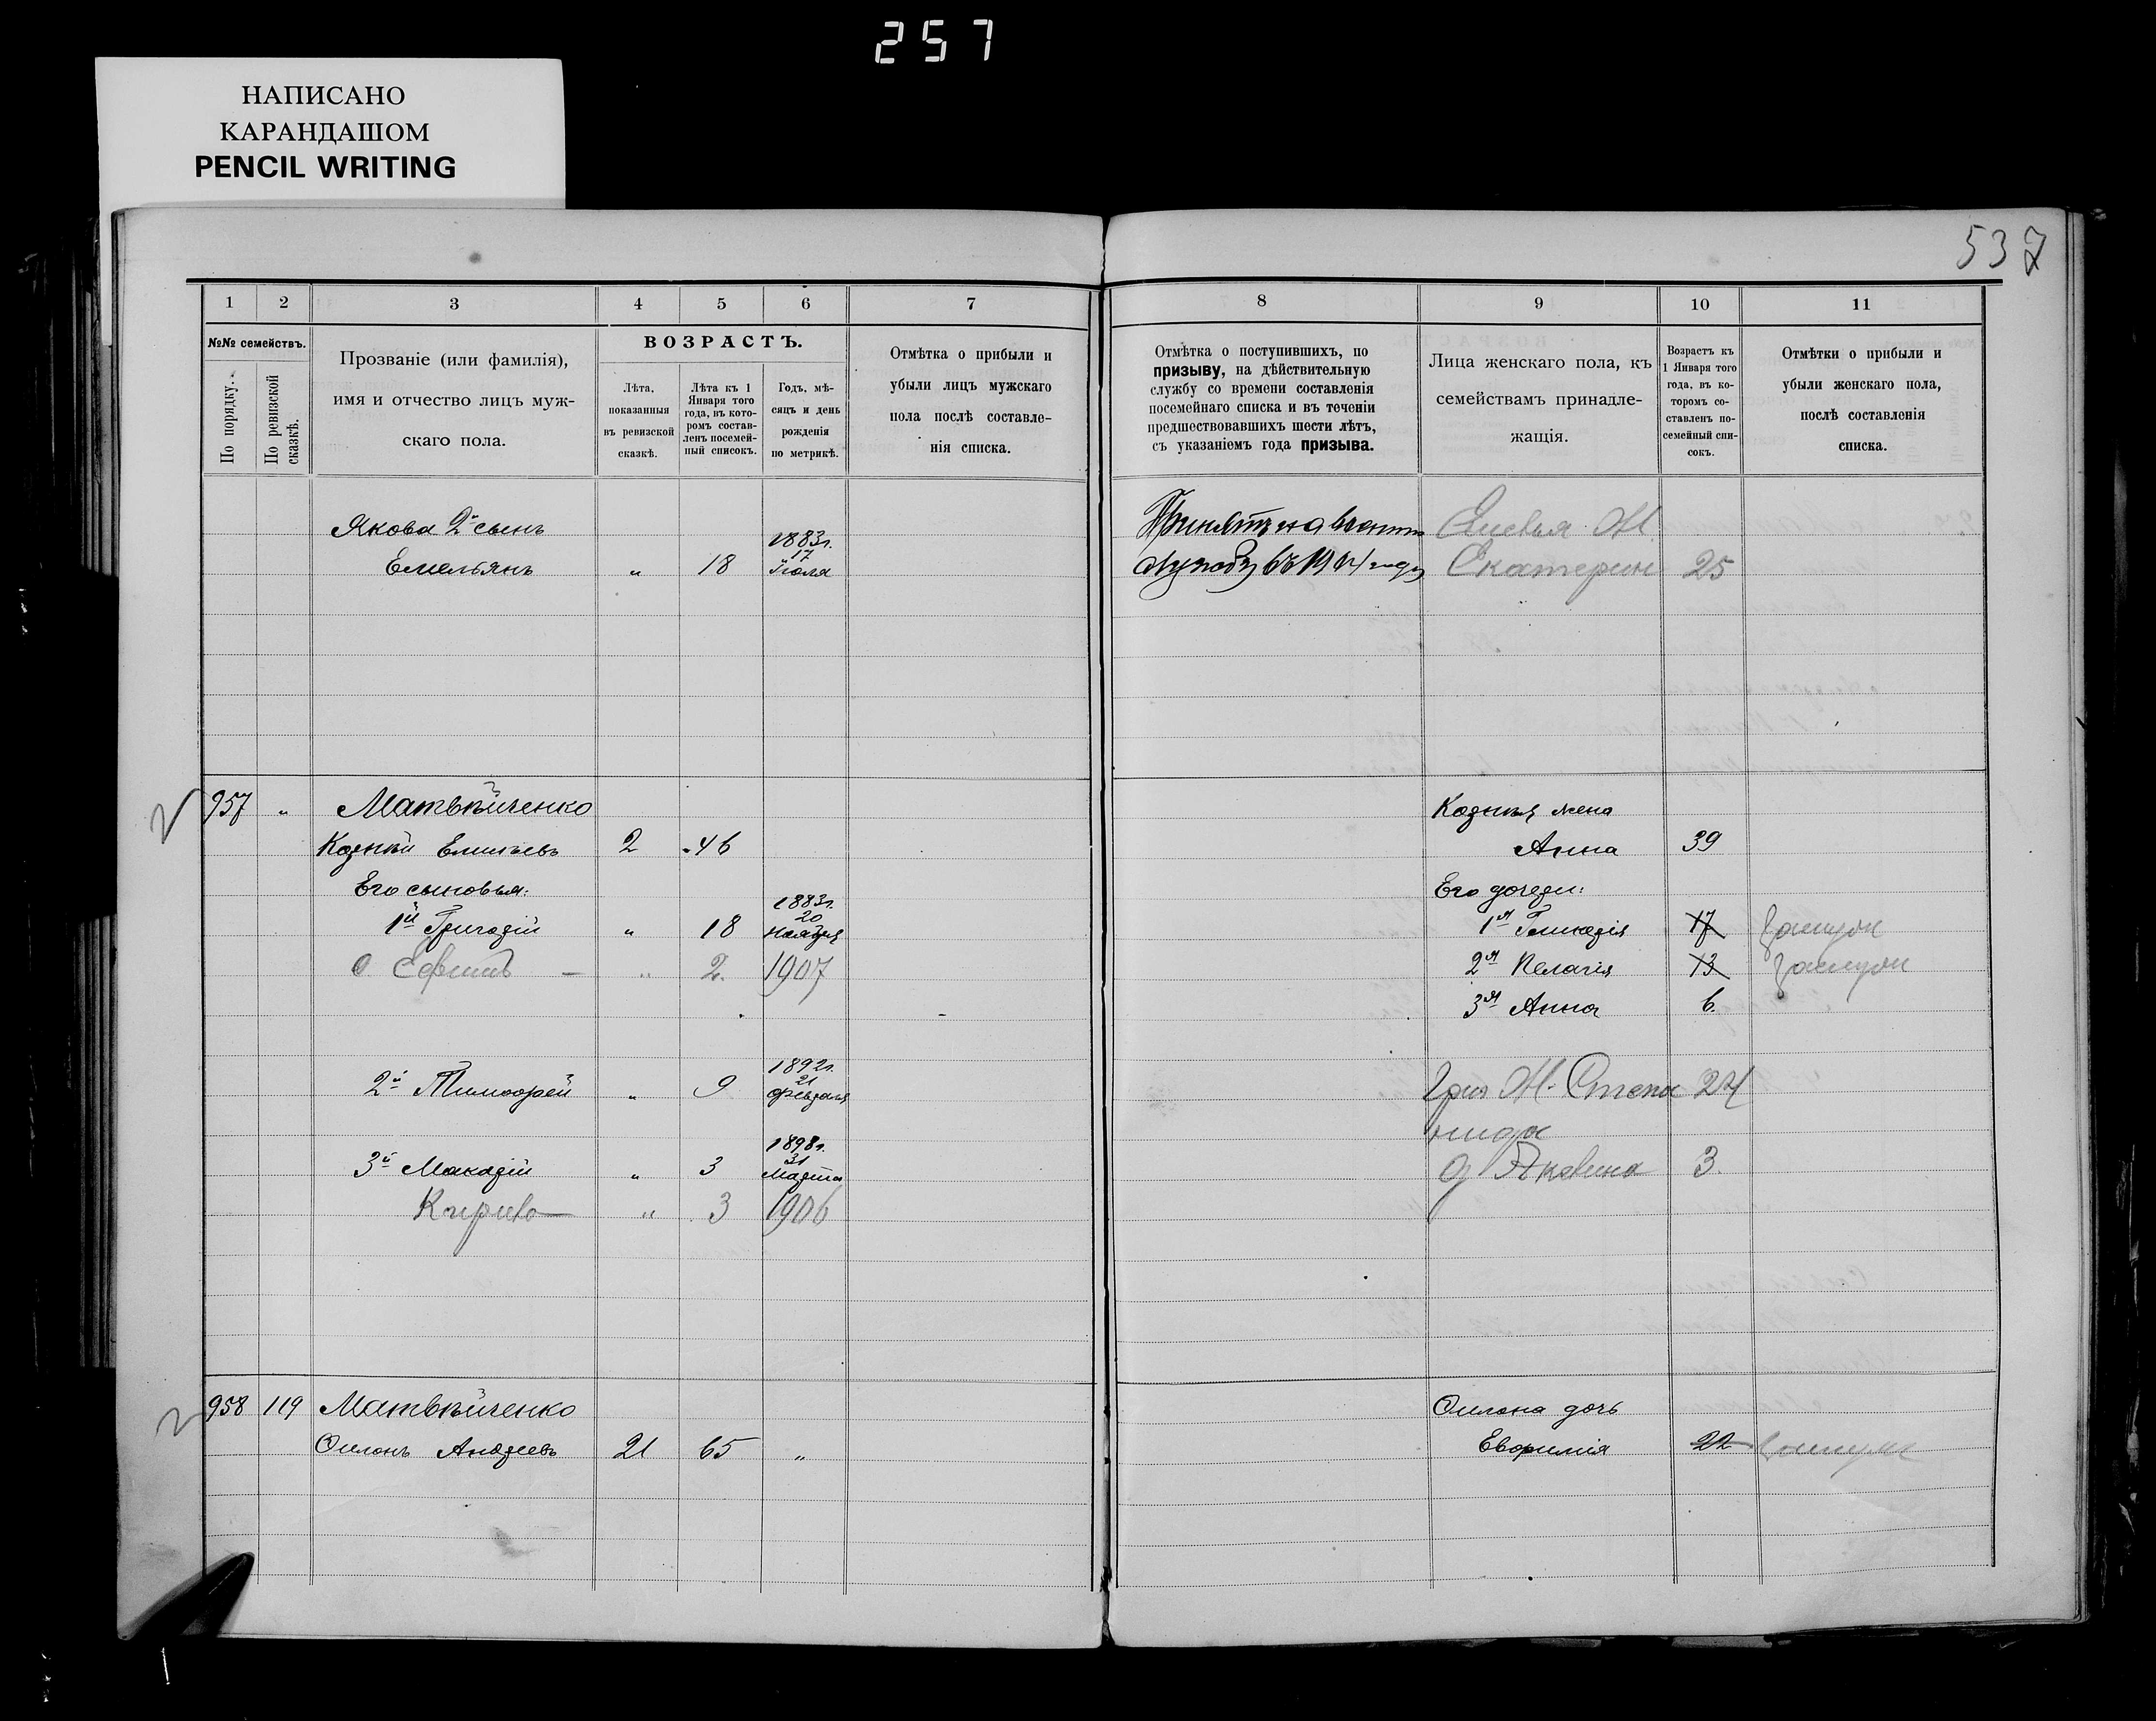 257
НАПИСАНО
КАРАНДАШОМ
PENCIL WRITING
537
1 2 3 4 5 6 7 8 9 10 11
№№ семействъ.
По порядку.
По ревизской сказкѣ.
Прозваніе (или фамилія),
имя и отчество лицъ муж-
скаго пола.
ВОЗРАСТЪ.
Лѣта,
показанныя
въ ревизской
сказкѣ.
Лѣта къ 1
Января того
года, въ кото-
ромъ состав-
ленъ посемей-
ный списокъ.
Годъ, мѣ-
сяцъ и день
рожденія
по метрикѣ.
Отмѣтка о прибыли и
убыли лицъ мужскаго
пола послѣ составле-
нія списка.
Отмѣтка о поступившихъ, по
призыву, на дѣйствительную
службу со времени составленія
посемейнаго списка и въ теченіи
предшествовавшихъ шести лѣтъ,
съ указаніемъ года призыва.
Лица женскаго пола, къ
семействамъ принадле-
жащія.
Возрастъ къ
1 Января того
года, въ ко-
торомъ со-
ставленъ по-
семейный спи-
сокъ.
Отмѣтки о прибыли и
убыли женскаго пола,
послѣ составленія
списка.
Якова 2й сынъ
Емельянъ " 18 1883г. 17 Іюля
Принятъ на
службу въ году
Екатерин 25
957 " Матвѣйченко
Козьма жена
2 46
Анна 39
Его сыновья:
Его дочери:
1й Григорій " 18 1883г. 20 Ноября
1я Гликерія 17 замуж
" 2. 1907
2я Пелагія 13 замуж
3я Анна 6.
2й Тимофей " 9 1892г. 21 Февраля
Григ Ж. Степа 24
нида
3й Макарій " 3 1898г. 31 Марта
д Яковина 3
Кирило " 3 1906
958 119 Матвѣйченко
дочь
Андреевъ 21 65 "
Евфимія 22 замуж